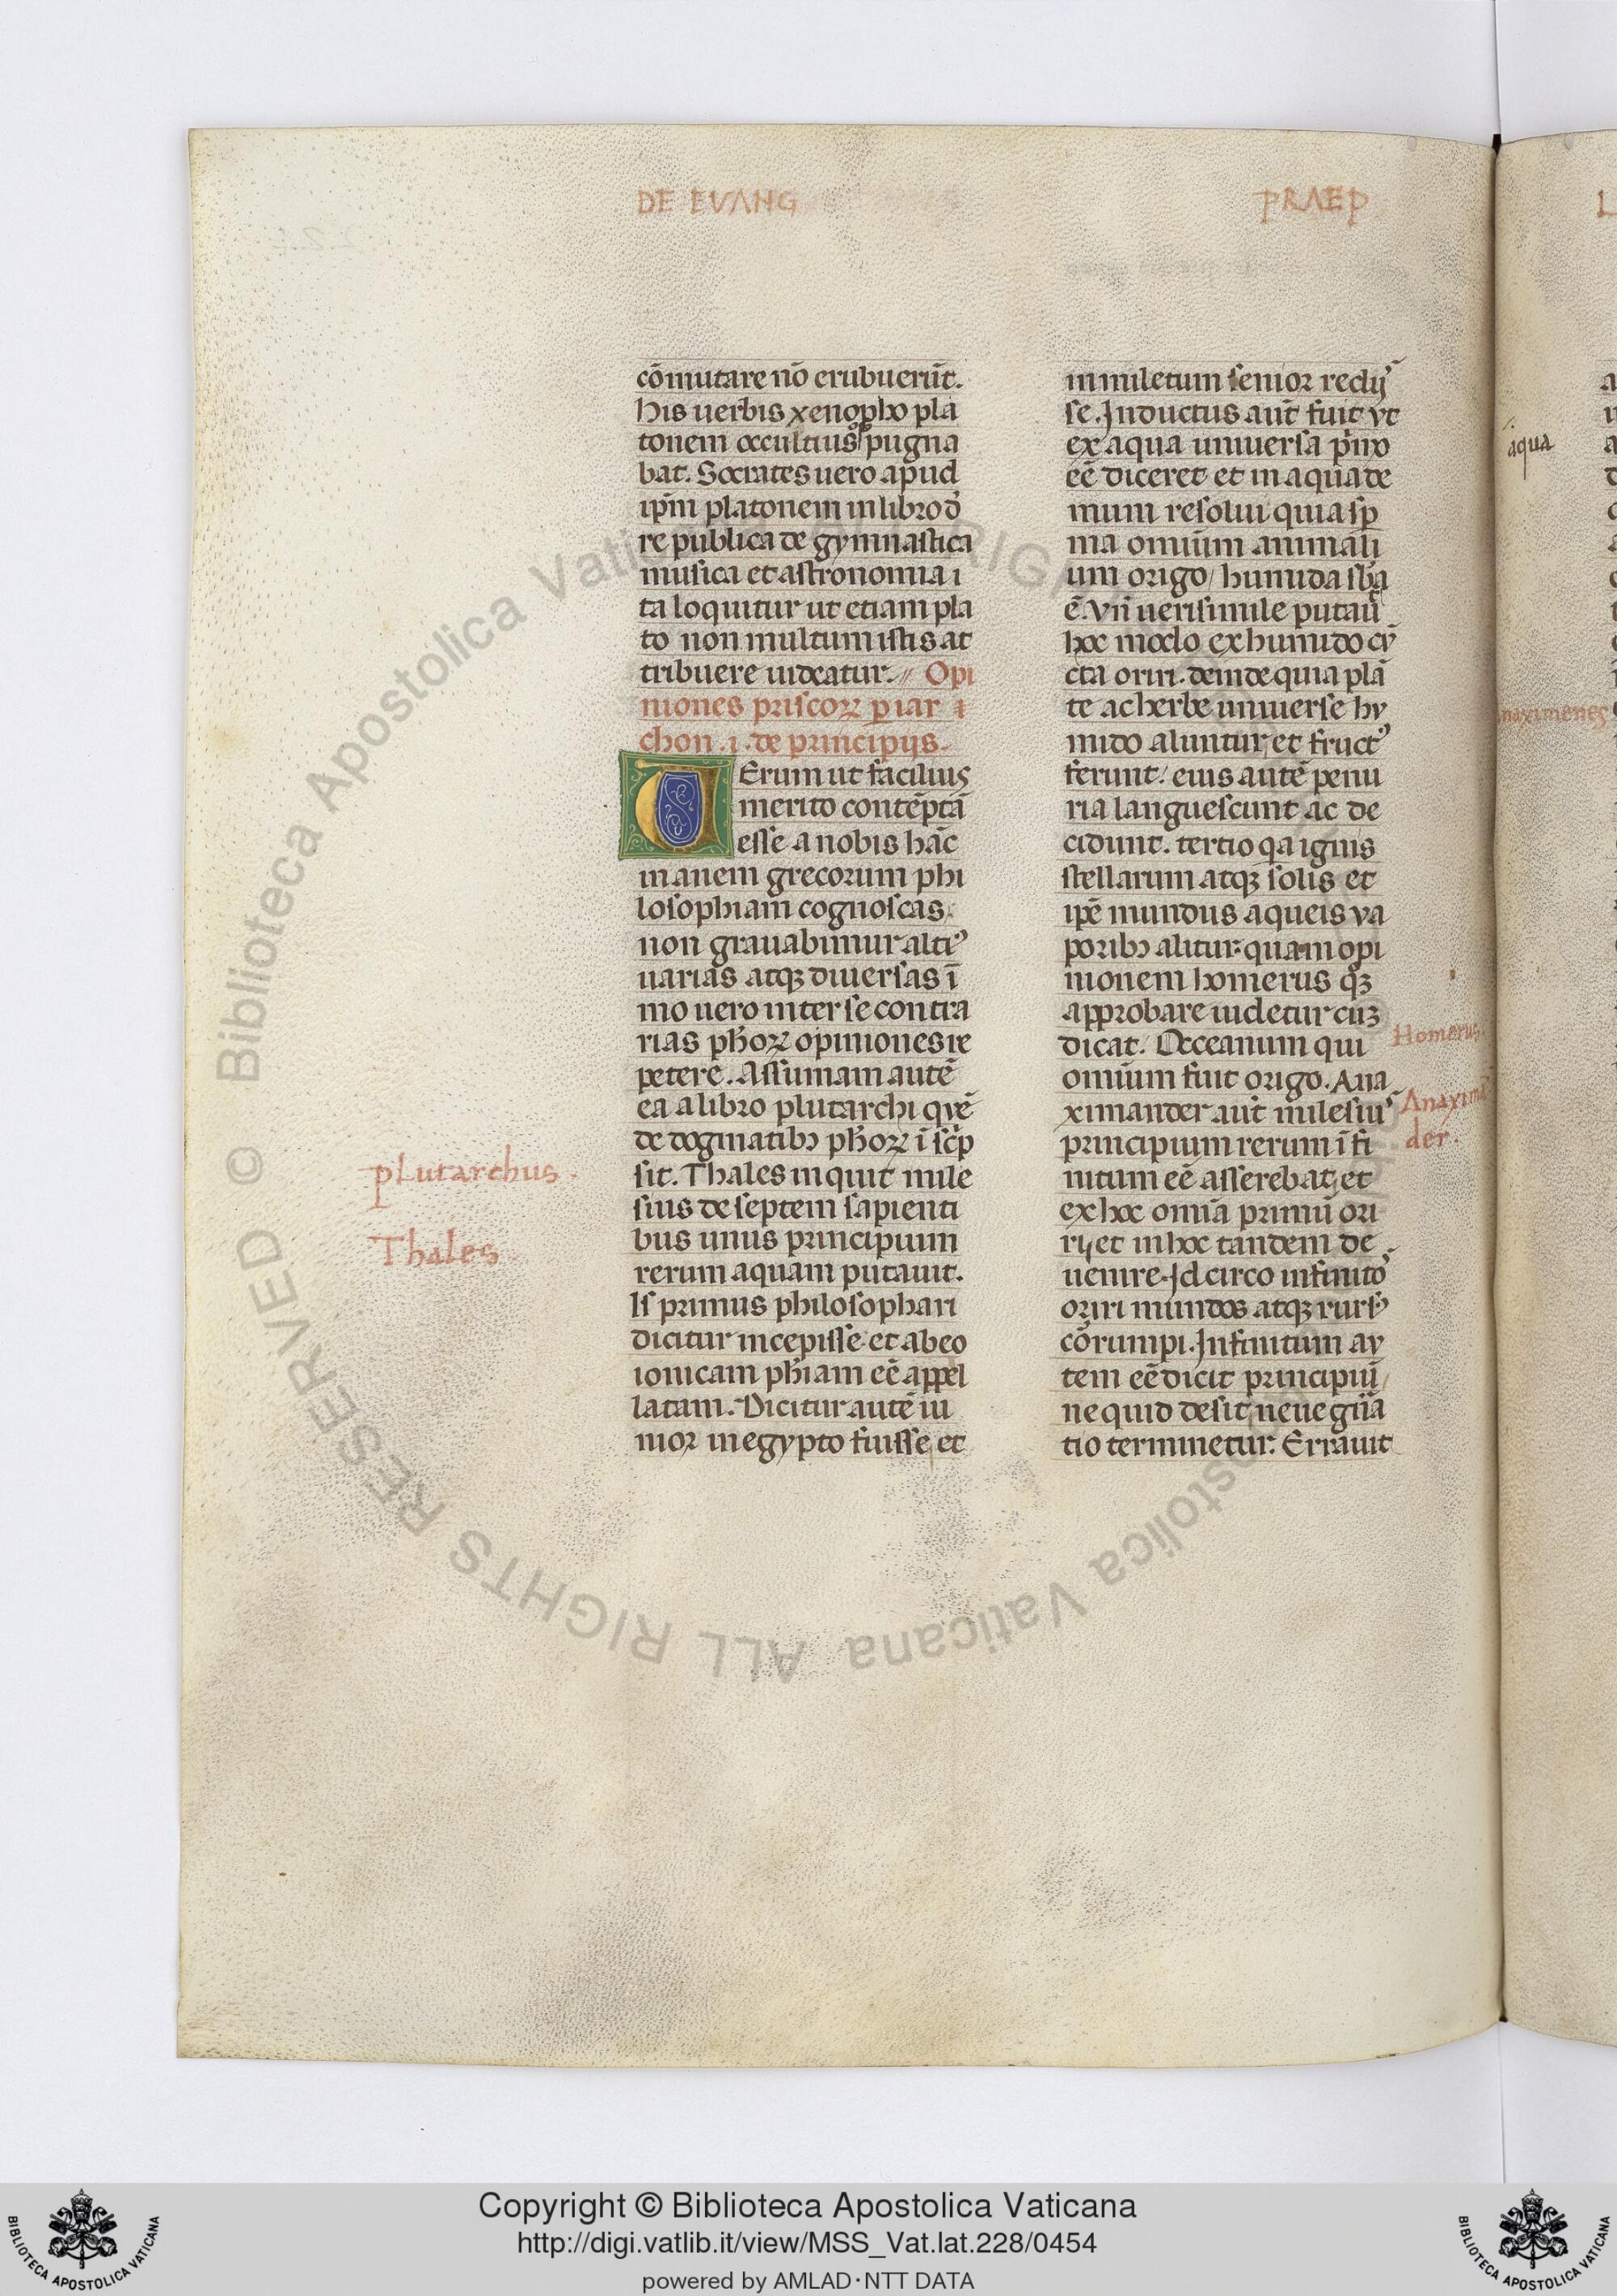 DE EVANG
PRAEP
cōmutare nō erubuerūt.
his uerbis xenopho pla
tonem occultius pugna
bat. Socrates uero apud
ip̄m platonem in libro d̄
re publica de gymnastica
musica et astronomia i
ta loquitur ut etiam pla
to non multum istis at
tribuere uideatur. Opi
niones priscorꝝ
chon .i. de principijs.
Verum ut facilius
merito contēptā
esse a nobis hāc
inanem grecorum phi
losophiam cognoscas
non grauabimur altiꝰ
uarias atqꝫ diuersas ī
mo uero inter se contra
rias ph̄orꝝ opiniones re
petere. Assumam autē
ea a libro plutarchi quē
de dogmatibꝫ ph̄orꝝ ī sc̄p
sit. Thales inquit mile
sius de septem sapienti
bus unus principium
rerum aquam putauit.
Is primus philosophari
dicitur incepisse et ab eo
ionicam ph̄iam eē appel
latam. Dicitur autē iu
nior in egypto fuisse et
plutarchus.
Thales
in miletum senior redij
se. Inductus aūt fuit vt
ex aqua uniuersa
eē diceret et in aqua de
mum resolui quia sp̄
ma omnium animali
um origo / humida
ē. Vn̄ uerisimile putauī
hoc modo ex humido cū
cta oriri. deinde quia plā
te ac herbe uniuerse hu
mido aluntur et fructꝰ
ferunt / eius autē penu
ria languescunt ac de
cidunt. tertio qa ignis
stellarum atqꝫ solis et
ipē mundus aqueis va
poribꝫ alitur: quam opi
nionem homerus qꝫ
approbare uidetur cuꝫ
dicat. Occeanum qui
omnium fuit origo. Ana
ximander aūt milesiuꝰ
principium rerum īfi
nitum eē asserebat, et
ex hoc omīa primū ori
ri, et in hoc tandem de
uenire. Idcirco infinitō
oriri mundos atqꝫ rursꝰ
cōrumpi. Infinitum au
tem eē dicit principiū
ne quid desit neue gn̄a
tio terminetur. Errauit
Homerus.
Anaximā
der.
aqua
Anaximenes
Copyright © Biblioteca Apostolica Vaticana
http://digi.vatlib.it/view/MSS_Vat.lat.228/0454
powered by AMLAD·NTT DATA
BIBLIOTECA APOSTOLICA VATICANA
BIBLIOTECA APOSTOLICA VATICANA
© Biblioteca Apostolica Vaticana ALL RIGHTS RESERVED